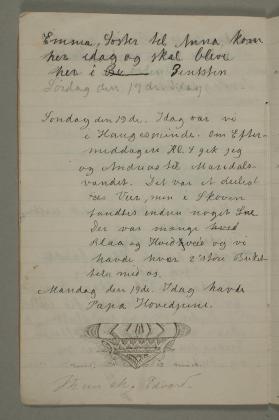 Emma, Søster til Anna kom
her idag og skal blive
her i Pintsten
Lørdag den 17de. Idag
Søndag den 18de. Idag var vi
i Haugesminde. Om Efter-
middagen Kl. 4 gik jeg
og Andreas til Maridals-
vandet. Det var et deiligt
Veir, men i Skoven
fandtes endnu noget Sne
Der var mange
Blaa og Hvidveis og vi
havde hver 2 store Buket-
ter med os.
Mandag den 19de. Idag havde
Papa Hovedpine.